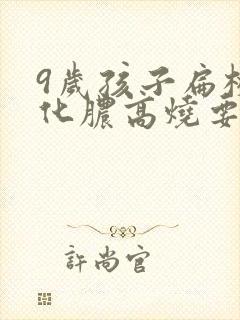 9歲孩子扁
化膿高燒要
許尚官